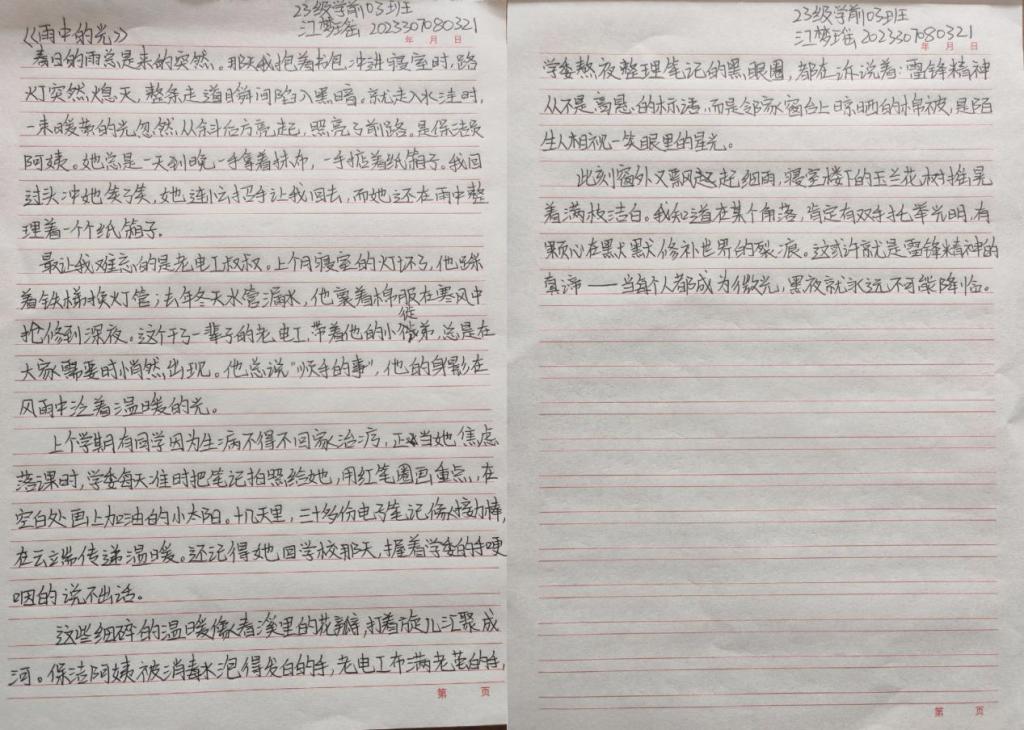 23级学前03班
江梦瑶 202330708​0321
年 月 日
《雨中的光》
春日的雨总是来的突然。那天我抱着书包冲进寝室时,路
灯突然熄灭,整条走道瞬间陷入黑暗。就走入水洼时,
一束暖黄的光忽然从斜后方亮起,照亮了前路。是保洁员
阿姨。她总是一天到晚,一手拿着抹布,一手掂着纸箱子。我回
过头冲她笑了笑,她连忙招手让我回去,而她还在雨中整
理着一个个纸箱子.
最让我难忘的是老电工叔叔。上个月寝室的灯坏了,他踩
着铁梯换灯管;去年冬天水管漏水,他裹着棉服在寒风中
抢修到深夜。这个干了一辈子的老电工,带着他的小徒弟,总是在
大家需要时悄然出现。他总说"顺手的事",他的身影在
风雨中泛着温暖的光。
上个学期有同学因为生病不得不回家治疗,正当她焦虑
落课时,学委每天准时把笔记拍照给她,用红笔圈画重点,在
空白处画上加油的小太阳。十几天里,三十多份电子笔记像接力棒,
在云端传递温暖。还记得她回学校那天,握着学委的手哽
咽的说不出话。
这些细碎的温暖像春溪里的花瓣,打着旋儿汇聚成
河。保洁阿姨被消毒水泡得发白的手,老电工布满老茧的手,
第 页
23级学前03班
江梦瑶 2023307080321
年 月 日
学委熬夜整理笔记的黑眼圈,都在诉说着:雷锋精神
从不是高悬的标语,而是邻家窗台上晾晒的棉被,是陌
生人相视一笑眼里的星光。
此刻窗外又飘起细雨,寝室楼下的玉兰花树摇晃
着满枝洁白。我知道在某个角落,肯定有双手托举光明,有
颗心在默默修补世界的裂痕。这或许就是雷锋精神的
真谛——当每个人都成为微光,黑夜就永远不可能降临。
第 页